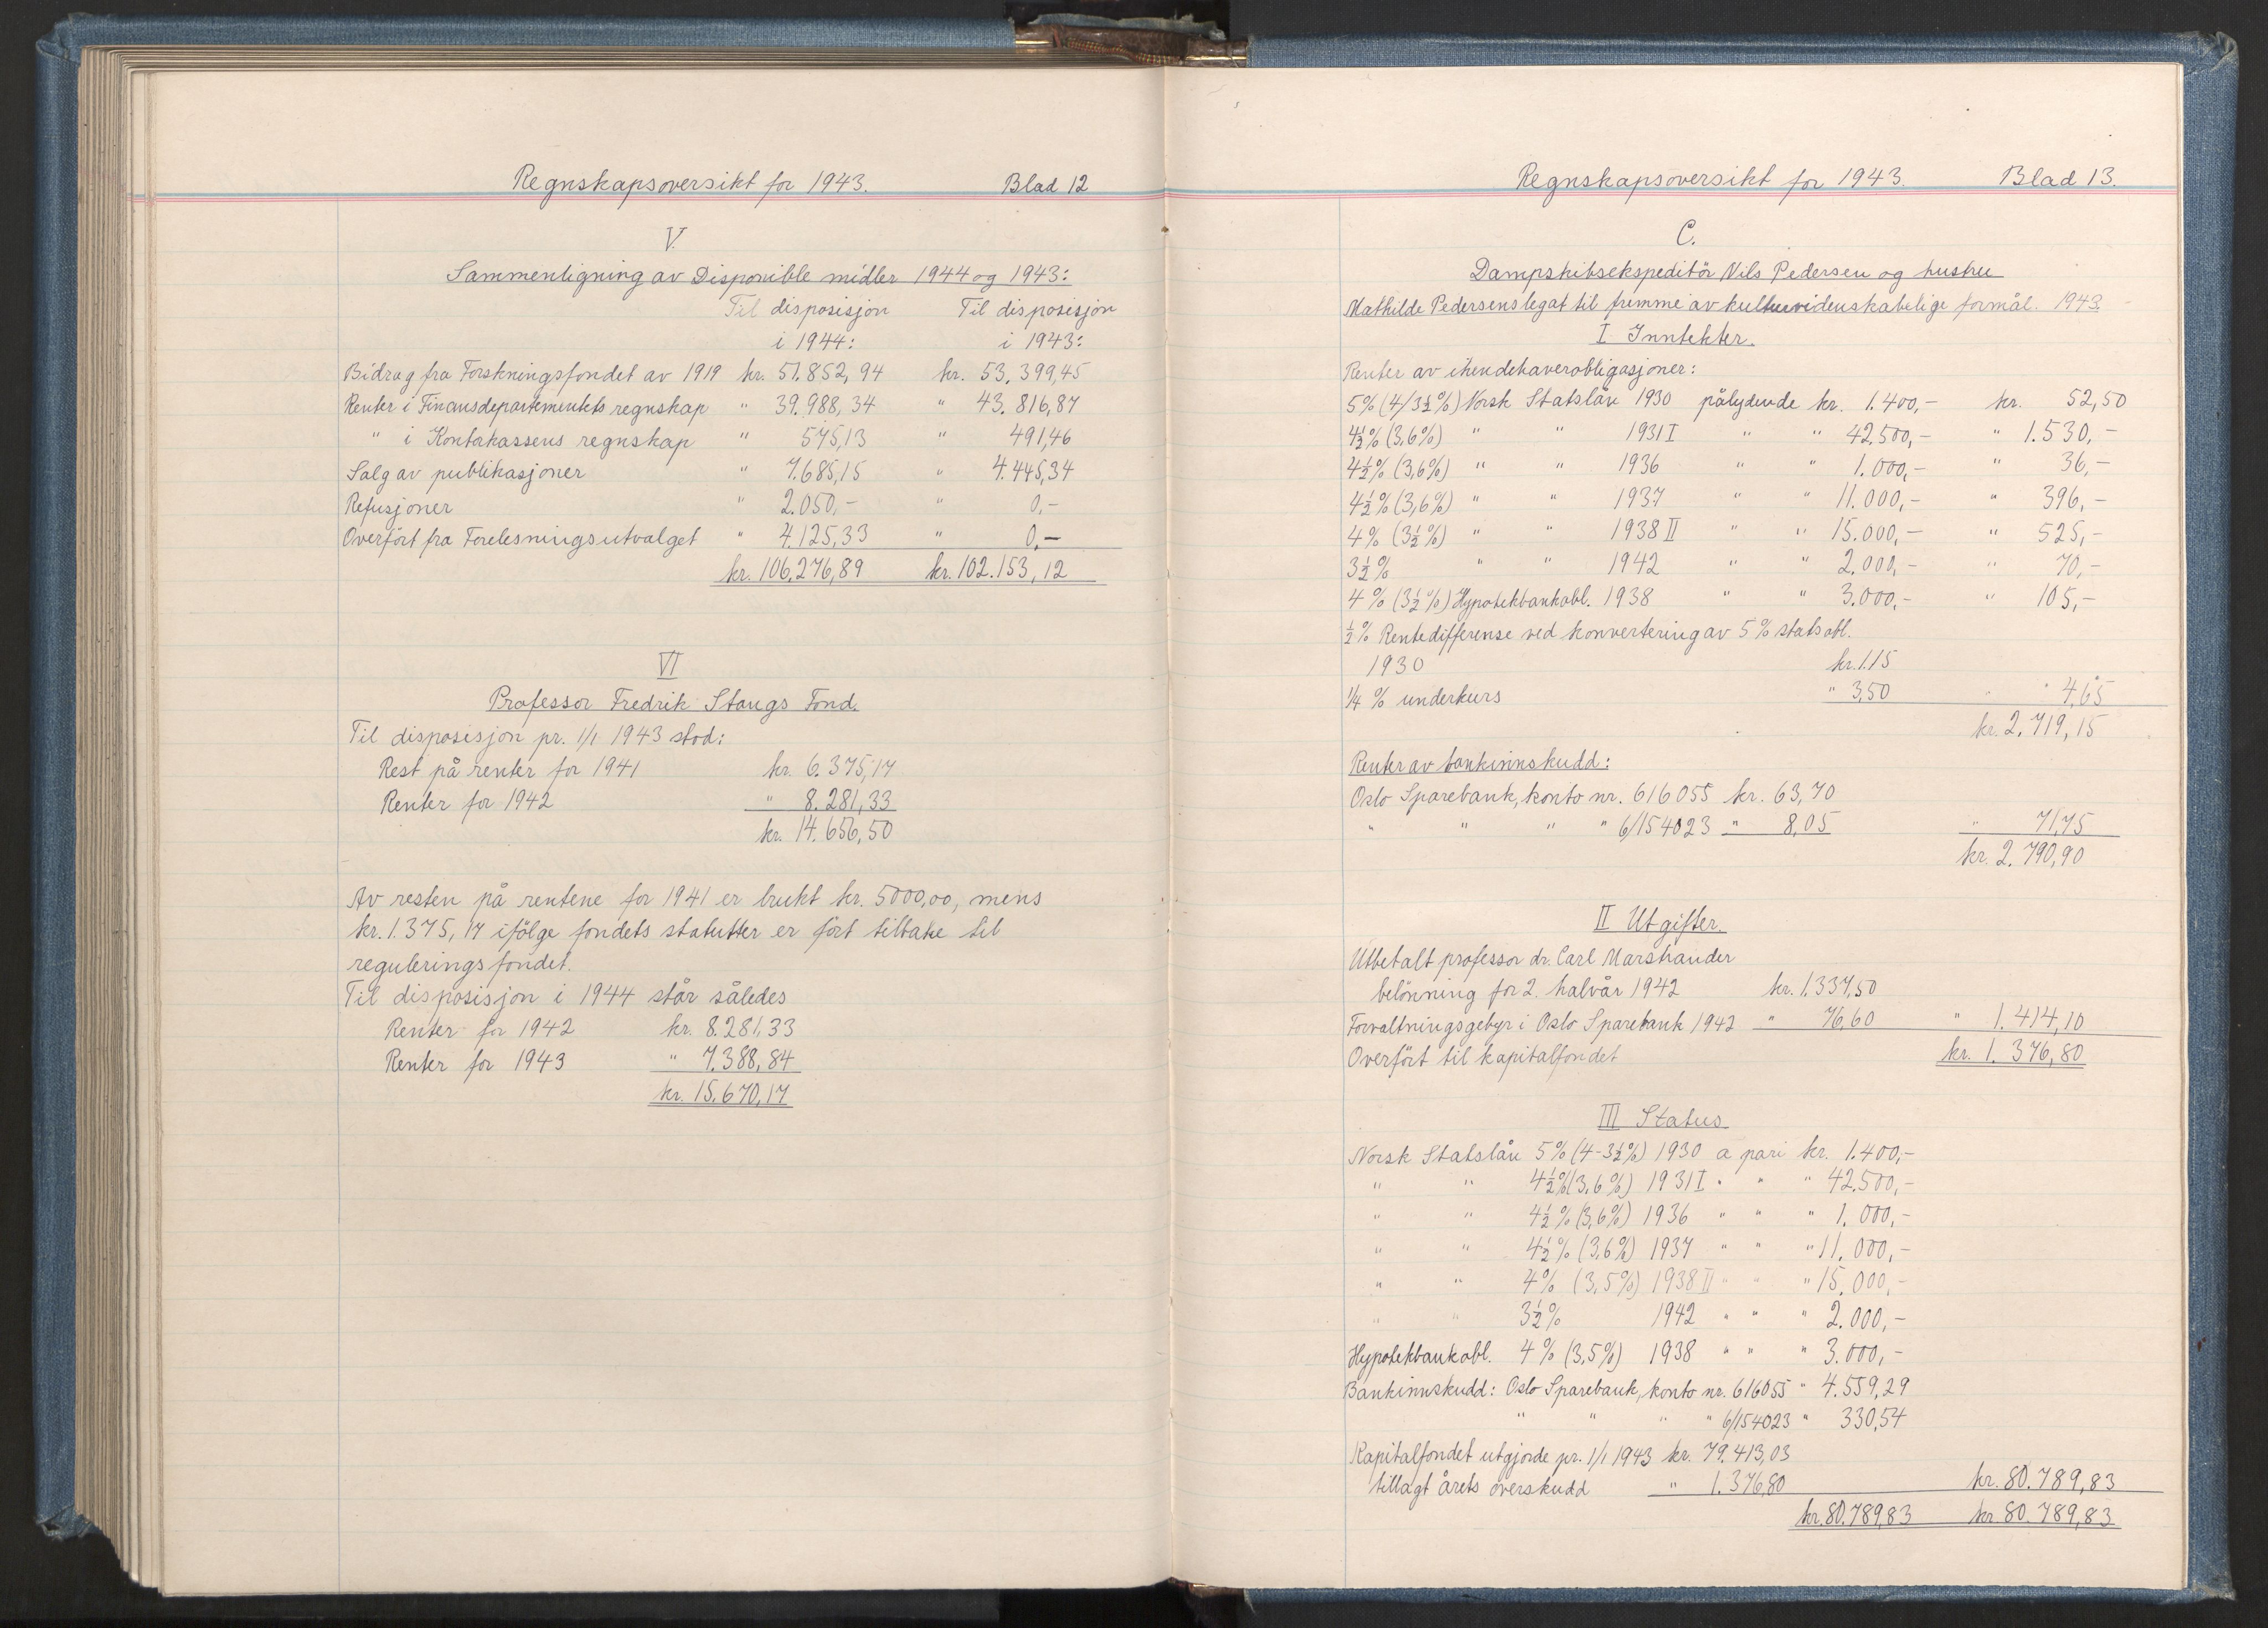 Regnskapsoversikt for 1943. Blad 12
V.
Sammenligning av Disponible midler 1944 og 1943:
Til disposisjon Til disposisjon
i 1944: i 1943:
Bidrag fra Forskningsfondet av 1919 kr. 51.852,94 kr. 53.399,45
Renter i Finansdepartementets regnskap " 39.988,34 " 43.816,87
" i Kontorkassens regnskap " 575,13 " 491,46
Salg av publikasjoner " 7.685,15 " 4.445,34
Refusjoner " 2.050,- " 0,-
Overført fra Forelesningsutvalget " 4.125,33 " 0,-
kr. 106.276,89 kr. 102.153,12
VI
Professor Fredrik Stangs Fond.
Til disposisjon pr. 1/1 1943 stod:
Rest på renter for 1941 kr. 6.375,17
Renter for 1942 " 8.281,33
kr. 14.656,50
Av resten på rentene for 1941 er brukt kr. 5000,00, mens
kr. 1.375,17 ifölge fondets statutter er fört tilbake til
reguleringsfondet.
Til disposisjon i 1944 står således
Renter for 1942 kr. 8.281,33
Renter for 1943 " 7.388,84
kr. 15.670,17
Regnskapsoversikt for 1943. Blad 13.
C.
Dampskibsekspeditör Nils Pedersen og hustru
Mathilde Pedersens legat til fremme av kulturvidenskabelige formål. 1943.
I Inntekter.
Renter av ihendehaverobligasjoner:
5% (4/3½%) Norsk Statslån 1930 pålydende kr. 1.400,- kr. 52,50
4½% (3,6%) " " 1931 I " " 42.500,- " 1.530,-
4½% (3,6%) " " 1936 " " 1.000,- " 36,-
4½% (3,6%) " " 1937 " " 11.000,- " 396,-
4% (3½%) " " 1938 II " " 15.000,- " 525,-
3½% " " 1942 " " 2.000,- " 70,-
4% (3½%) Hypotekbankobl. 1938 " " 3.000,- " 105,-
½% Rentedifferense ved konvertering av 5% statsobl.
1930 kr. 1.15
1/4 % underkurs " 3,50 " 4,65
kr. 2.719,15
Renter av bankinnskudd:
Oslo Sparebank, konto nr. 616055 kr. 63,70
" " " " 6/154023 " 8,05 " 71,75
kr. 2.790,90
II Utgifter.
Utbetalt professor dr. Carl Marstrander
belönning for 2. halvår 1942 kr. 1.337,50
Forvaltningsgebyr i Oslo Sparebank 1942 " 76,60 " 1.414,10
Overfört til kapitalfondet kr. 1.376,80
III Status
Norsk Statslån 5% (4-3½%) 1930 a pari kr. 1.400,-
" " 4½% (3,6%) 1931 I " " " 42.500,-
" " 4½% (3,6%) 1936 " " " 1.000,-
" " 4½% (3,6%) 1937 " " " 11.000,-
" " 4% (3,5%) 1938 II " " " 15.000,-
" " 3½% 1942 " " " 2.000,-
Hypotekbankobl. 4% (3,5%) 1938 " " " 3.000,-
Bankinnskudd: Oslo Sparebank, konto nr. 616055 " 4.559,29
" " " " 6/154023 " 330,54
Kapitalfondet utgjorde pr. 1/1 1943 kr. 79.413,03
tillagt årets overskudd " 1.376,80 kr. 80.789,83
kr. 80.789,83 kr. 80.789,83